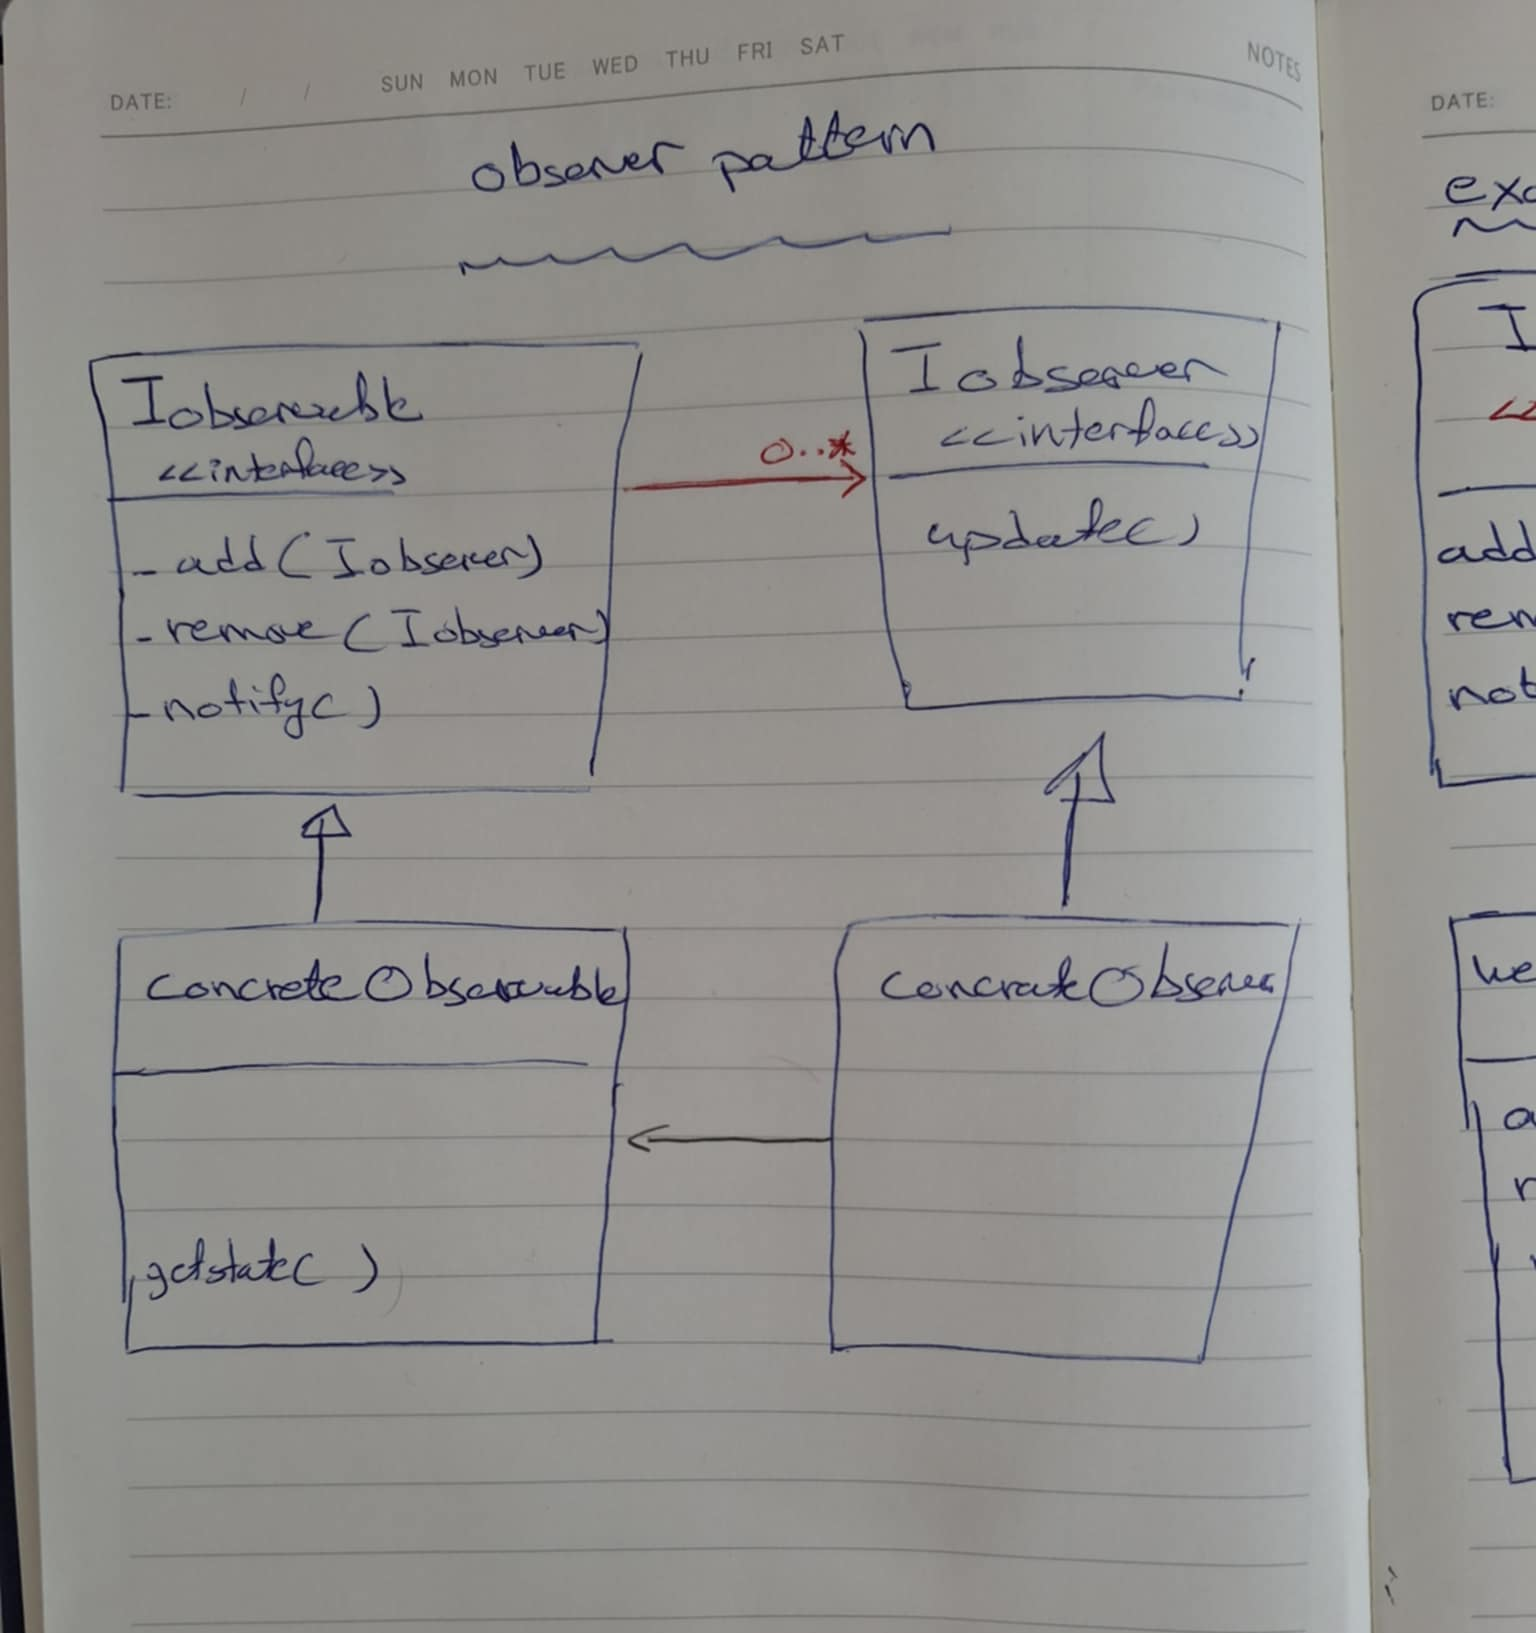 DATE: / / SUN MON TUE WED THU FRI SAT NOTES
observer pattern
Iobservable
<<interface>>
- add(Iobserver)
- remove(Iobserver)
- notify()
0..*
Iobserver
<<interface>>
update()
ConcreteObservable
getstate()
ConcreteObserver
DATE:
exa
I
<<
add
rem
not
we
a
r